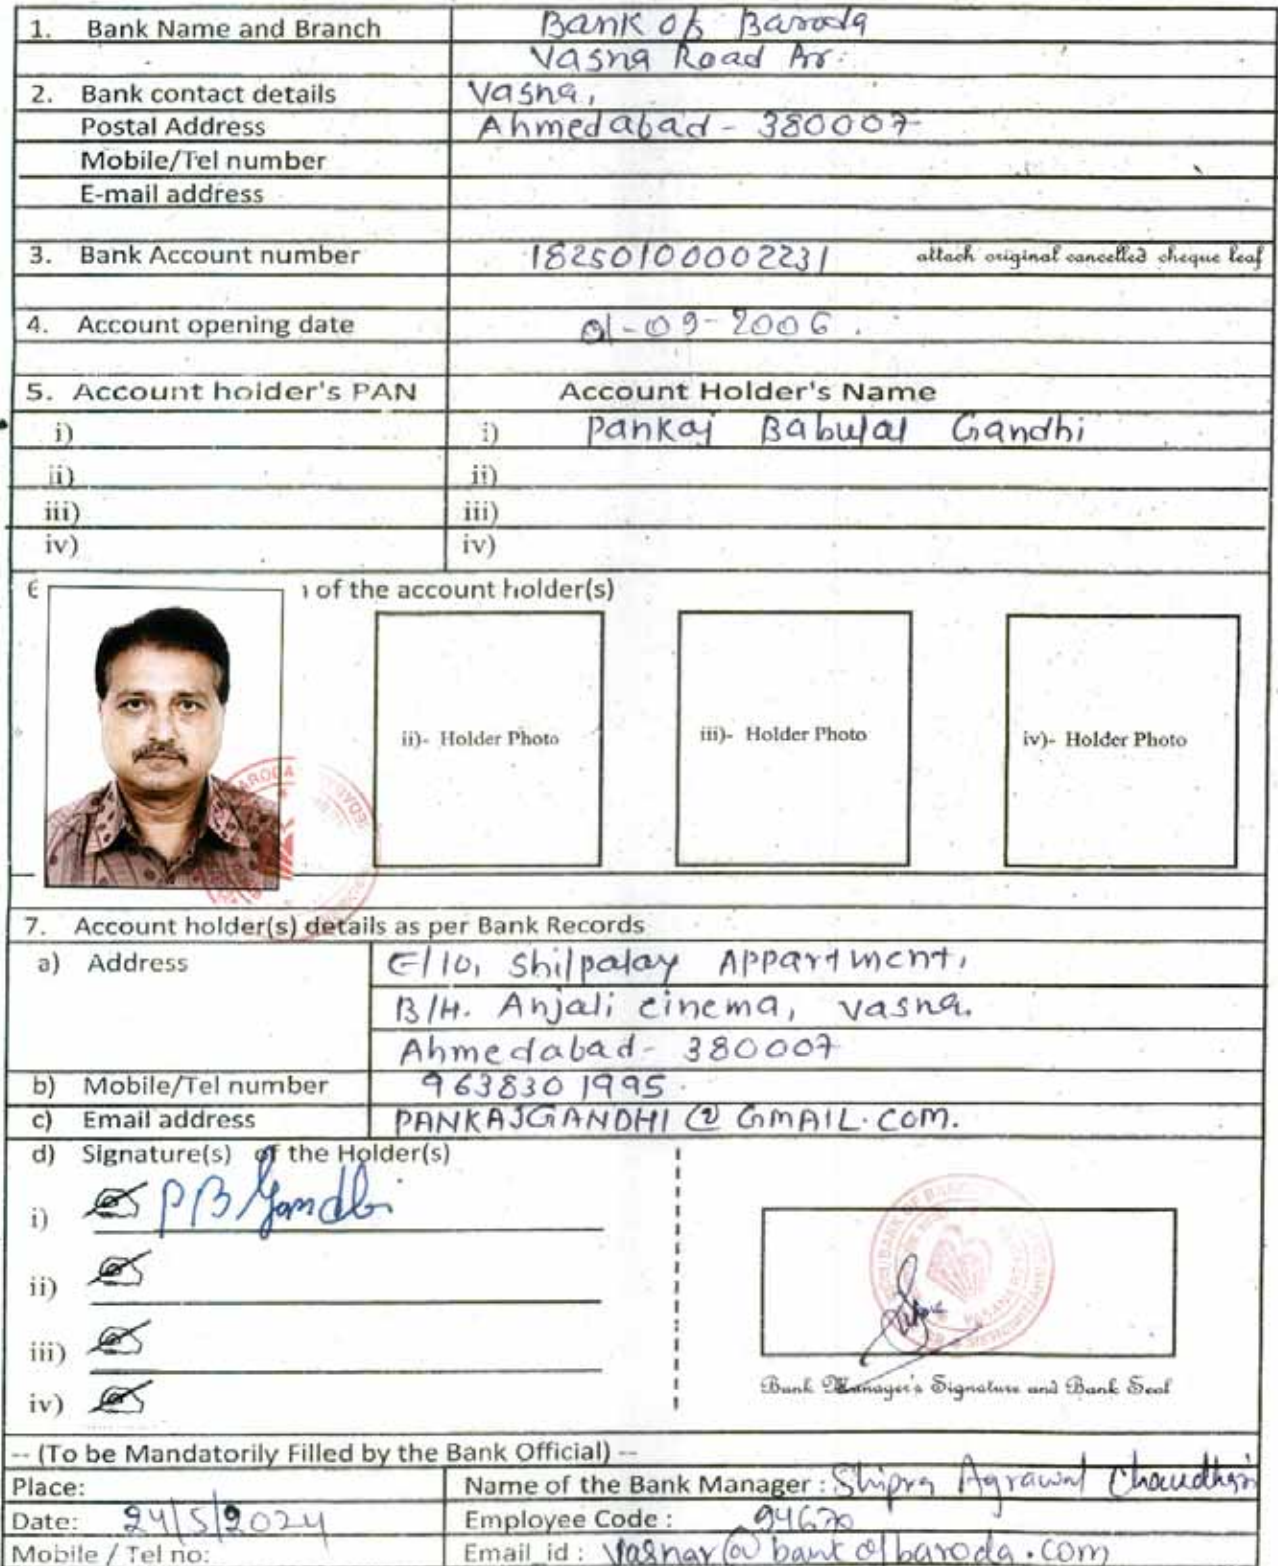 1. Bank Name and Branch Bank of Baroda
Vasna Road Ar.
2. Bank contact details Vasna,
Postal Address Ahmedabad - 380007
Mobile/Tel number
E-mail address
3. Bank Account number 18250100002231 attach original cancelled cheque leaf
4. Account opening date 01-09-2006.
5. Account holder's PAN Account Holder's Name
i) i) Pankaj Babulal Gandhi
ii) ii)
iii) iii)
iv) iv)
6 of the account holder(s)
ii)- Holder Photo iii)- Holder Photo iv)- Holder Photo
BARODA
7. Account holder(s) details as per Bank Records
a) Address E/10, Shilpalay Appartment,
B/H. Anjali cinema, vasna.
Ahmedabad - 380007
b) Mobile/Tel number 9638301995.
c) Email address PANKAJGANDHI@GMAIL.COM.
d) Signature(s) of the Holder(s)
i) PB Gandhi
ii)
iii)
iv)
BANK OF BARODA
Bank Manager's Signature and Bank Seal
-- (To be Mandatorily Filled by the Bank Official) --
Place: Name of the Bank Manager : Shipra Agrawal Chaudhari
Date: 24/5/2024 Employee Code : 94670
Mobile / Tel no: Email_id : Vasnar@bankofbaroda.com